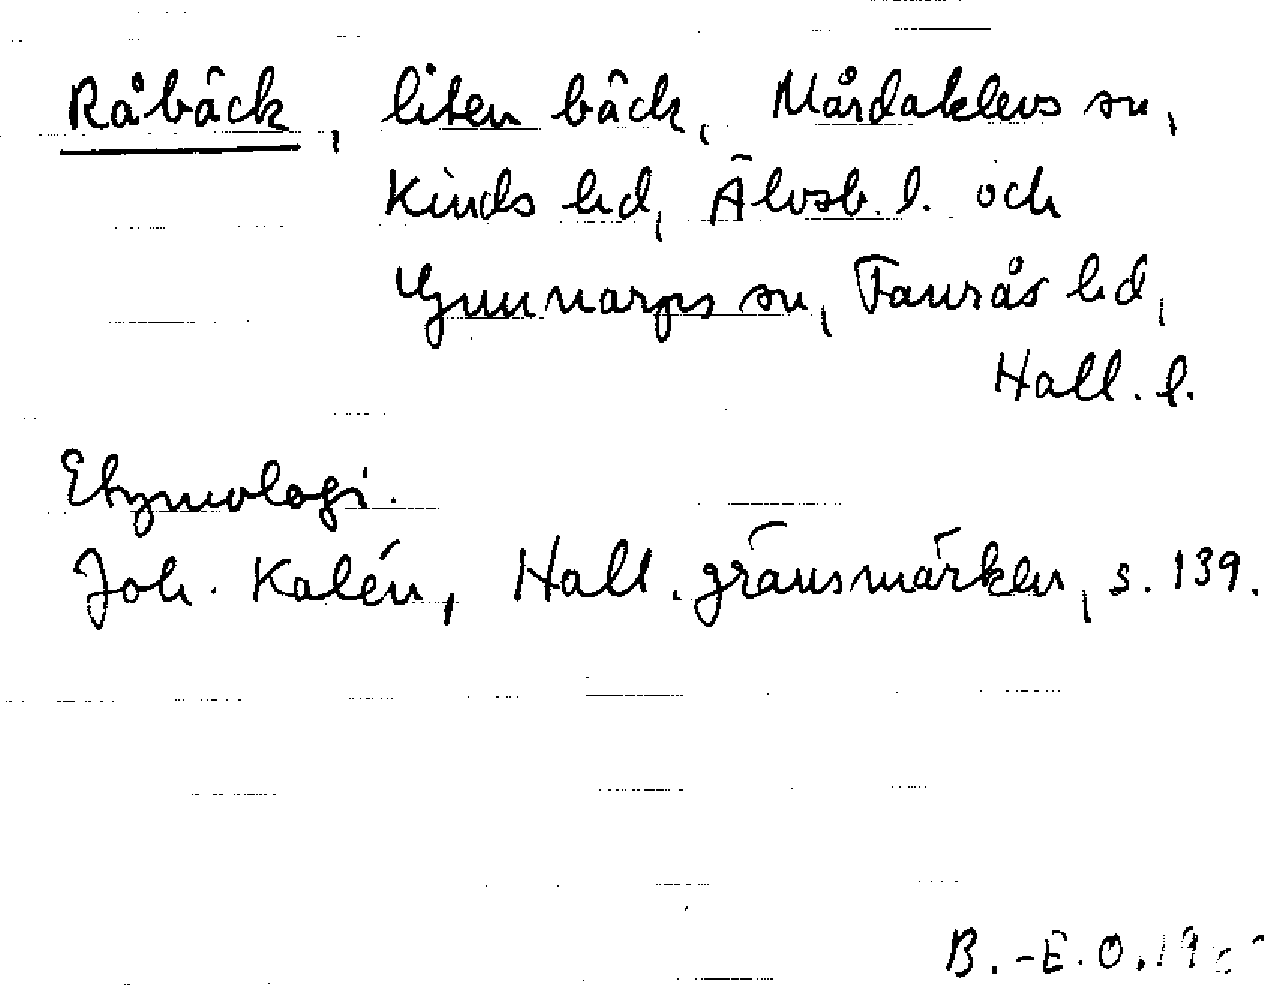 Råbäck, liten bäck, Mårdaklevs sn,
Kinds hd, Älvsb. l. och
Gunnarps sn, Faurås hd,
Hall. l.
Etymologi.
Joh. Kalén, Hall. gränsmärken, s. 139.
B.-E.O.